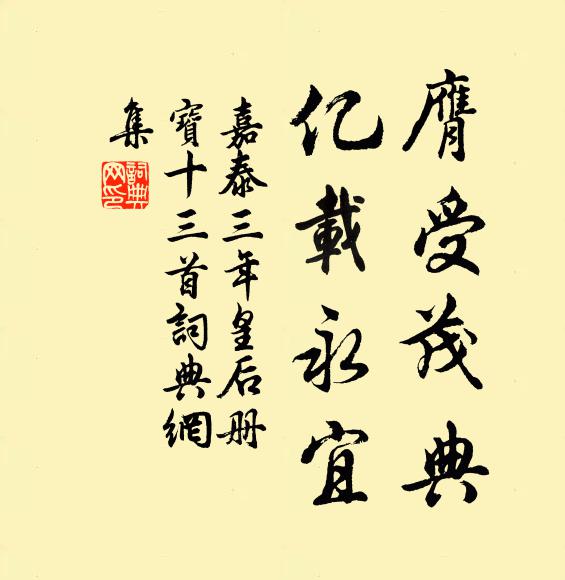 膺受茂典
亿載永宜
嘉泰三年皇后册
寶十三首詞典網
集
詞典
网印